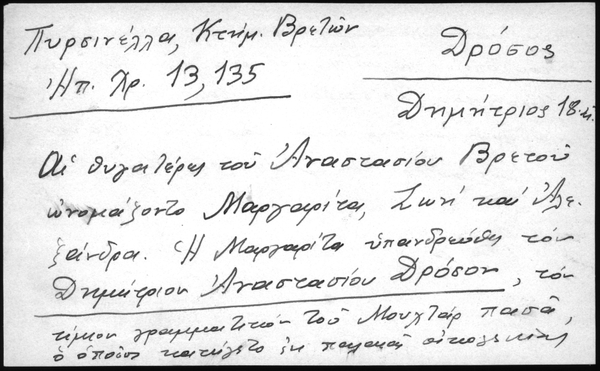 Πυρσινέλλα, Κτημ. Βρετῶν
Δρόσος
Ἠπ. Χρ. 13, 135
Δημήτριος 18
Αἱ θυγατέρες τοῦ Ἀναστασίου Βρετοῦ
ὠνομάζοντο Μαργαρίτα, Ζωή καί Ἀλε-
ξάνδρα. Ἡ Μαργαρίτα ὑπανδρεύθη τόν
Δημήτριον Ἀναστασίου Δρόσον, τόν
τίμιον γραμματικόν τοῦ Μουχτάρ πασᾶ,
ὁ ὁποῖος κατήγετο ἐκ παλαιᾶς οἰκογενείας